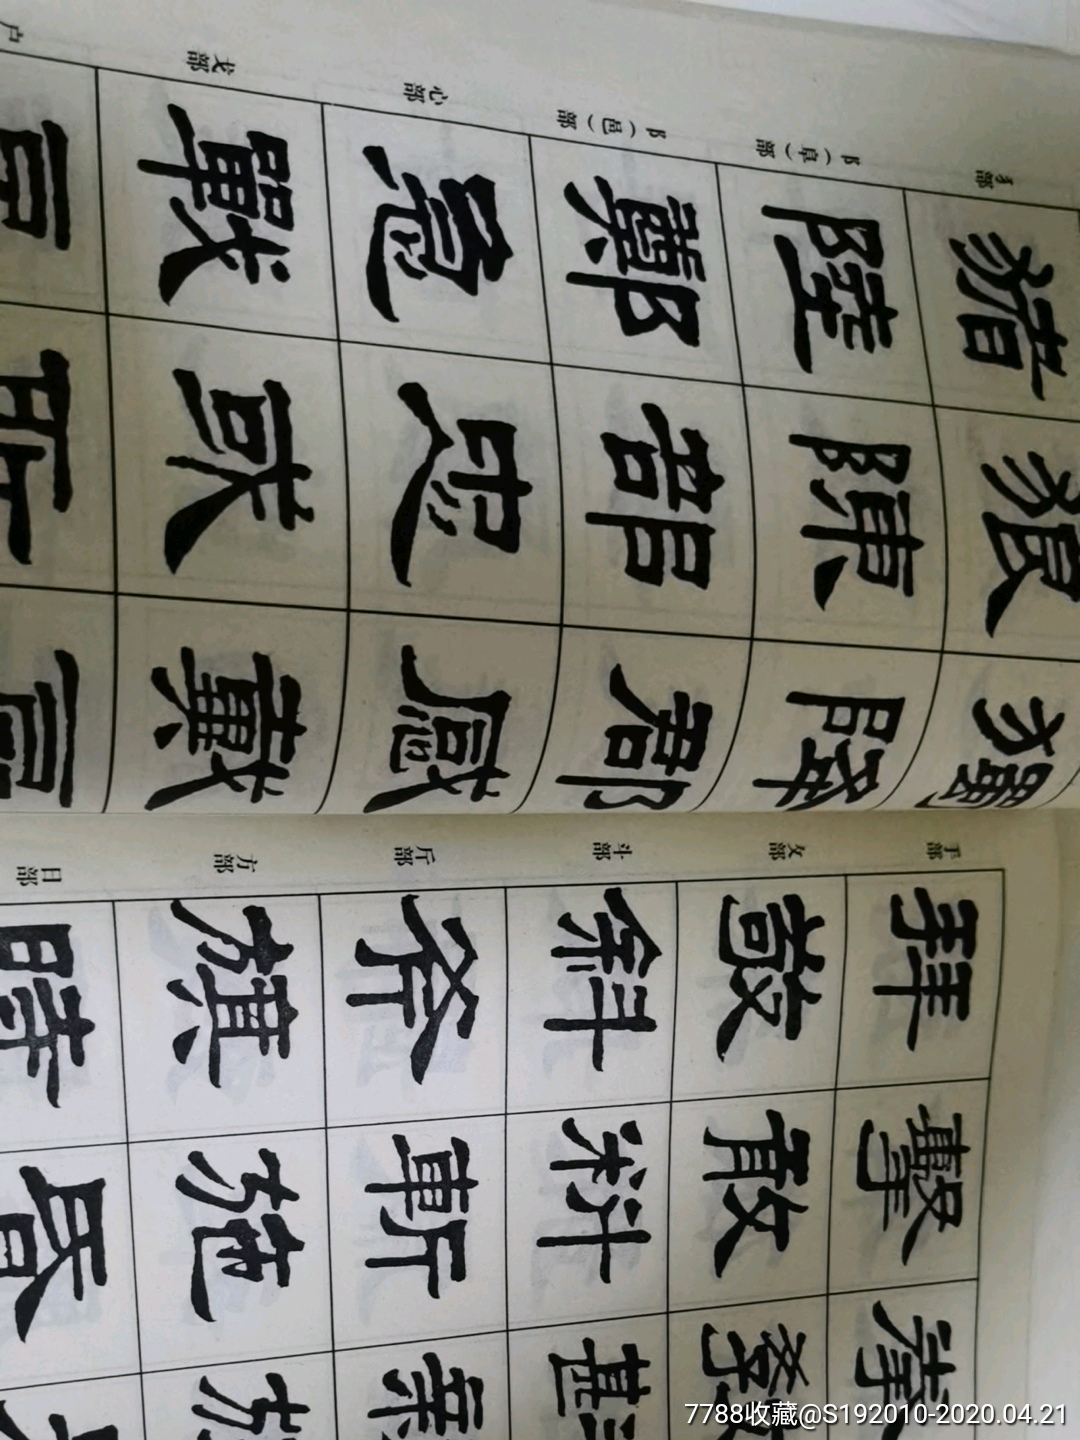 犭部
猎
狠
阝（阜）部
陸
陳
降
阝（邑）部
鄭
部
郡
心部
急
忠
感
戈部
戰
或
戴
户
手部
拜
擊
攵部
敬
敢
斗部
斜
料
斟
斤部
斧
斬
方部
旗
施
日部
時
7788收藏@S192010-2020.04.21